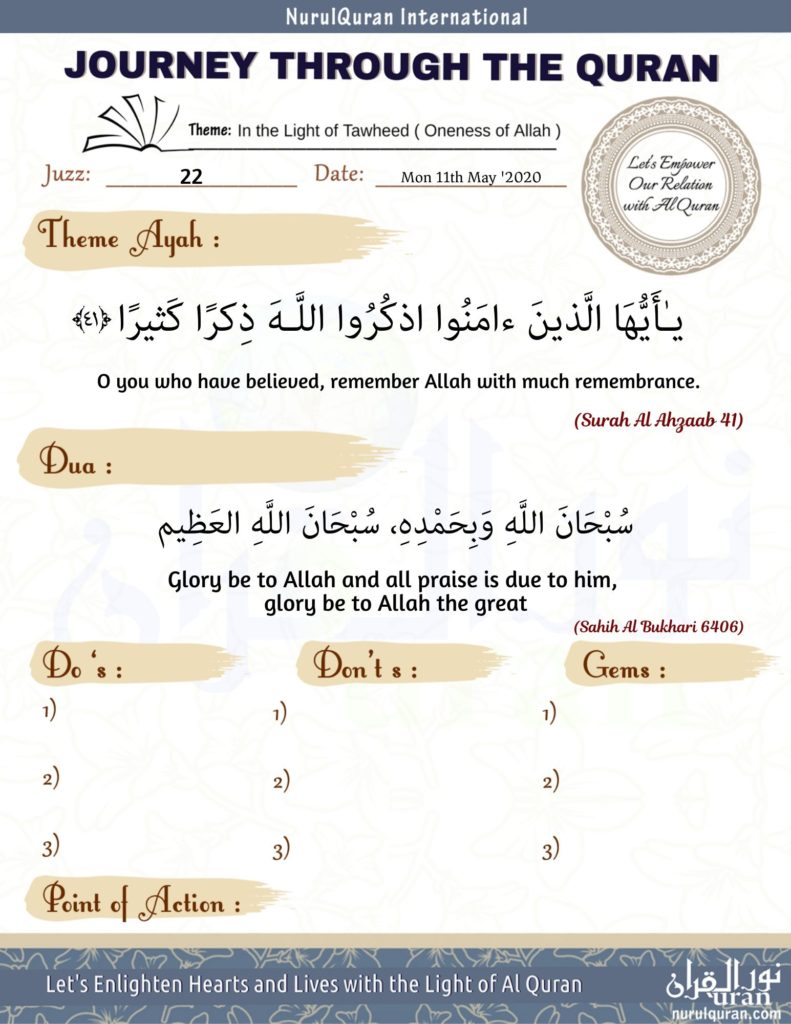 NurulQuran International
JOURNEY THROUGH THE QURAN
Theme: In the Light of Tawheed ( Oneness of Allah )
Juzz: 22 Date: Mon 11th May '2020
Let's Empower
Our Relation
with Al Quran
Theme Ayah :
يـٰأَيُّهَا الَّذينَ ءامَنُوا اذكُرُوا اللَّـهَ ذِكرًا كَثيرًا ﴿٤١﴾
O you who have believed, remember Allah with much remembrance.
(Surah Al Ahzaab 41)
Dua :
سُبْحَانَ اللَّهِ وَبِحَمْدِهِ، سُبْحَانَ اللَّهِ العَظِيم
Glory be to Allah and all praise is due to him,
glory be to Allah the great
(Sahih Al Bukhari 6406)
Do 's : Don't s : Gems :
1) 1) 1)
2) 2) 2)
3) 3) 3)
Point of Action :
Let's Enlighten Hearts and Lives with the Light of Al Quran
نور القرآن
uran
nurulquran.com